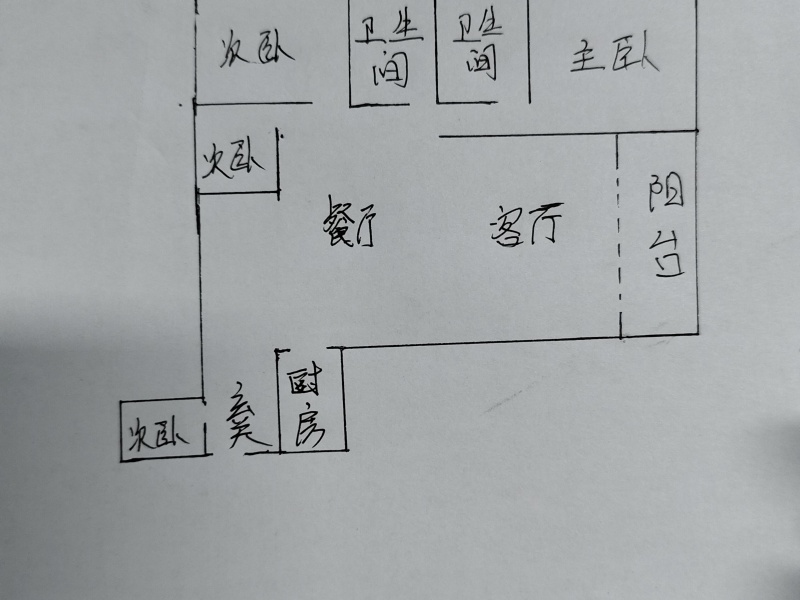 次卧
卫生间
卫生间
主卧
次卧
餐厅
客厅
阳台
次卧
玄关
厨房